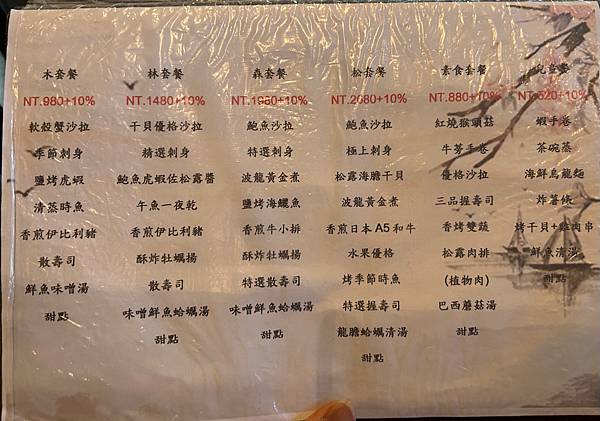 木套餐
NT.980+10%
軟殼蟹沙拉
季節刺身
鹽烤虎蝦
清蒸時魚
香煎伊比利豬
散壽司
鮮魚味噌湯
甜點
林套餐
NT.1480+10%
干貝優格沙拉
精選刺身
鮑魚虎蝦佐松露醬
午魚一夜乾
香煎伊比利豬
酥炸牡蠣揚
散壽司
味噌鮮魚蛤蠣湯
甜點
森套餐
NT.1980+10%
鮑魚沙拉
特選刺身
波龍黃金煮
鹽烤海鱺魚
香煎牛小排
酥炸牡蠣揚
特選散壽司
味噌鮮魚蛤蠣湯
甜點
松套餐
NT.2680+10%
鮑魚沙拉
極上刺身
松露海膽干貝
波龍黃金煮
香煎日本A5和牛
水果優格
烤季節時魚
特選握壽司
龍膽蛤蠣清湯
甜點
素食套餐
NT.880+10%
紅燒猴頭菇
牛蒡手卷
優格沙拉
三品握壽司
香烤雙蔬
松露肉排
(植物肉)
巴西蘑菇湯
甜點
兒童餐
NT.520+10%
蝦手卷
茶碗蒸
海鮮烏龍麵
炸薯條
烤干貝+雞肉串
鮮魚清湯
甜點